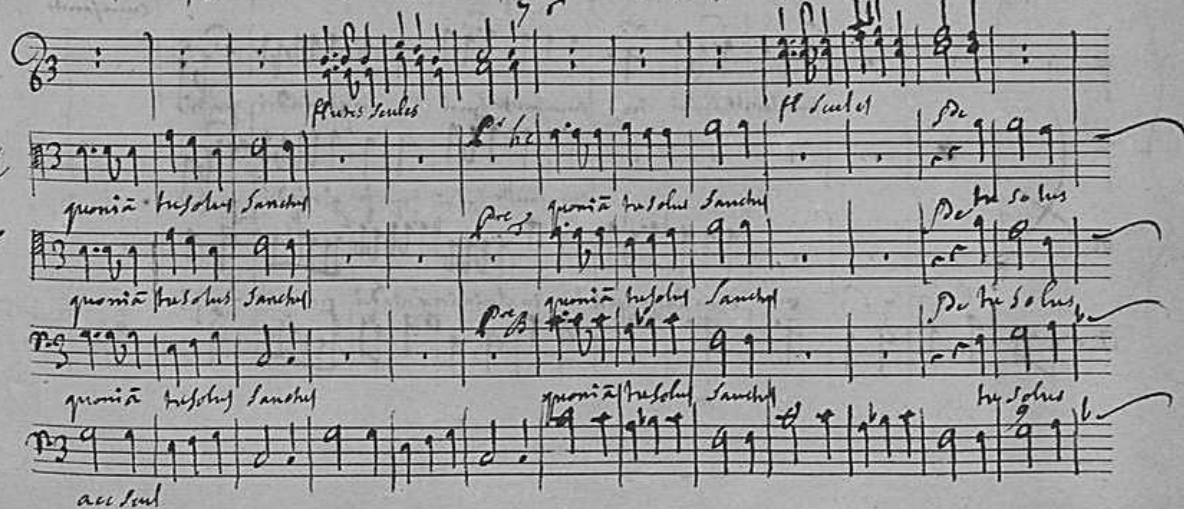 flutes seules fl seules
quoniā tu solus Sanctus quoniā tu solus Sanctus
tu solus
quoniā tu solus Sanctus quoniā tu solus Sanctus
tu solus
quoniā tu solus Sanctus quoniā tu solus Sanctus tu solus
acc seul